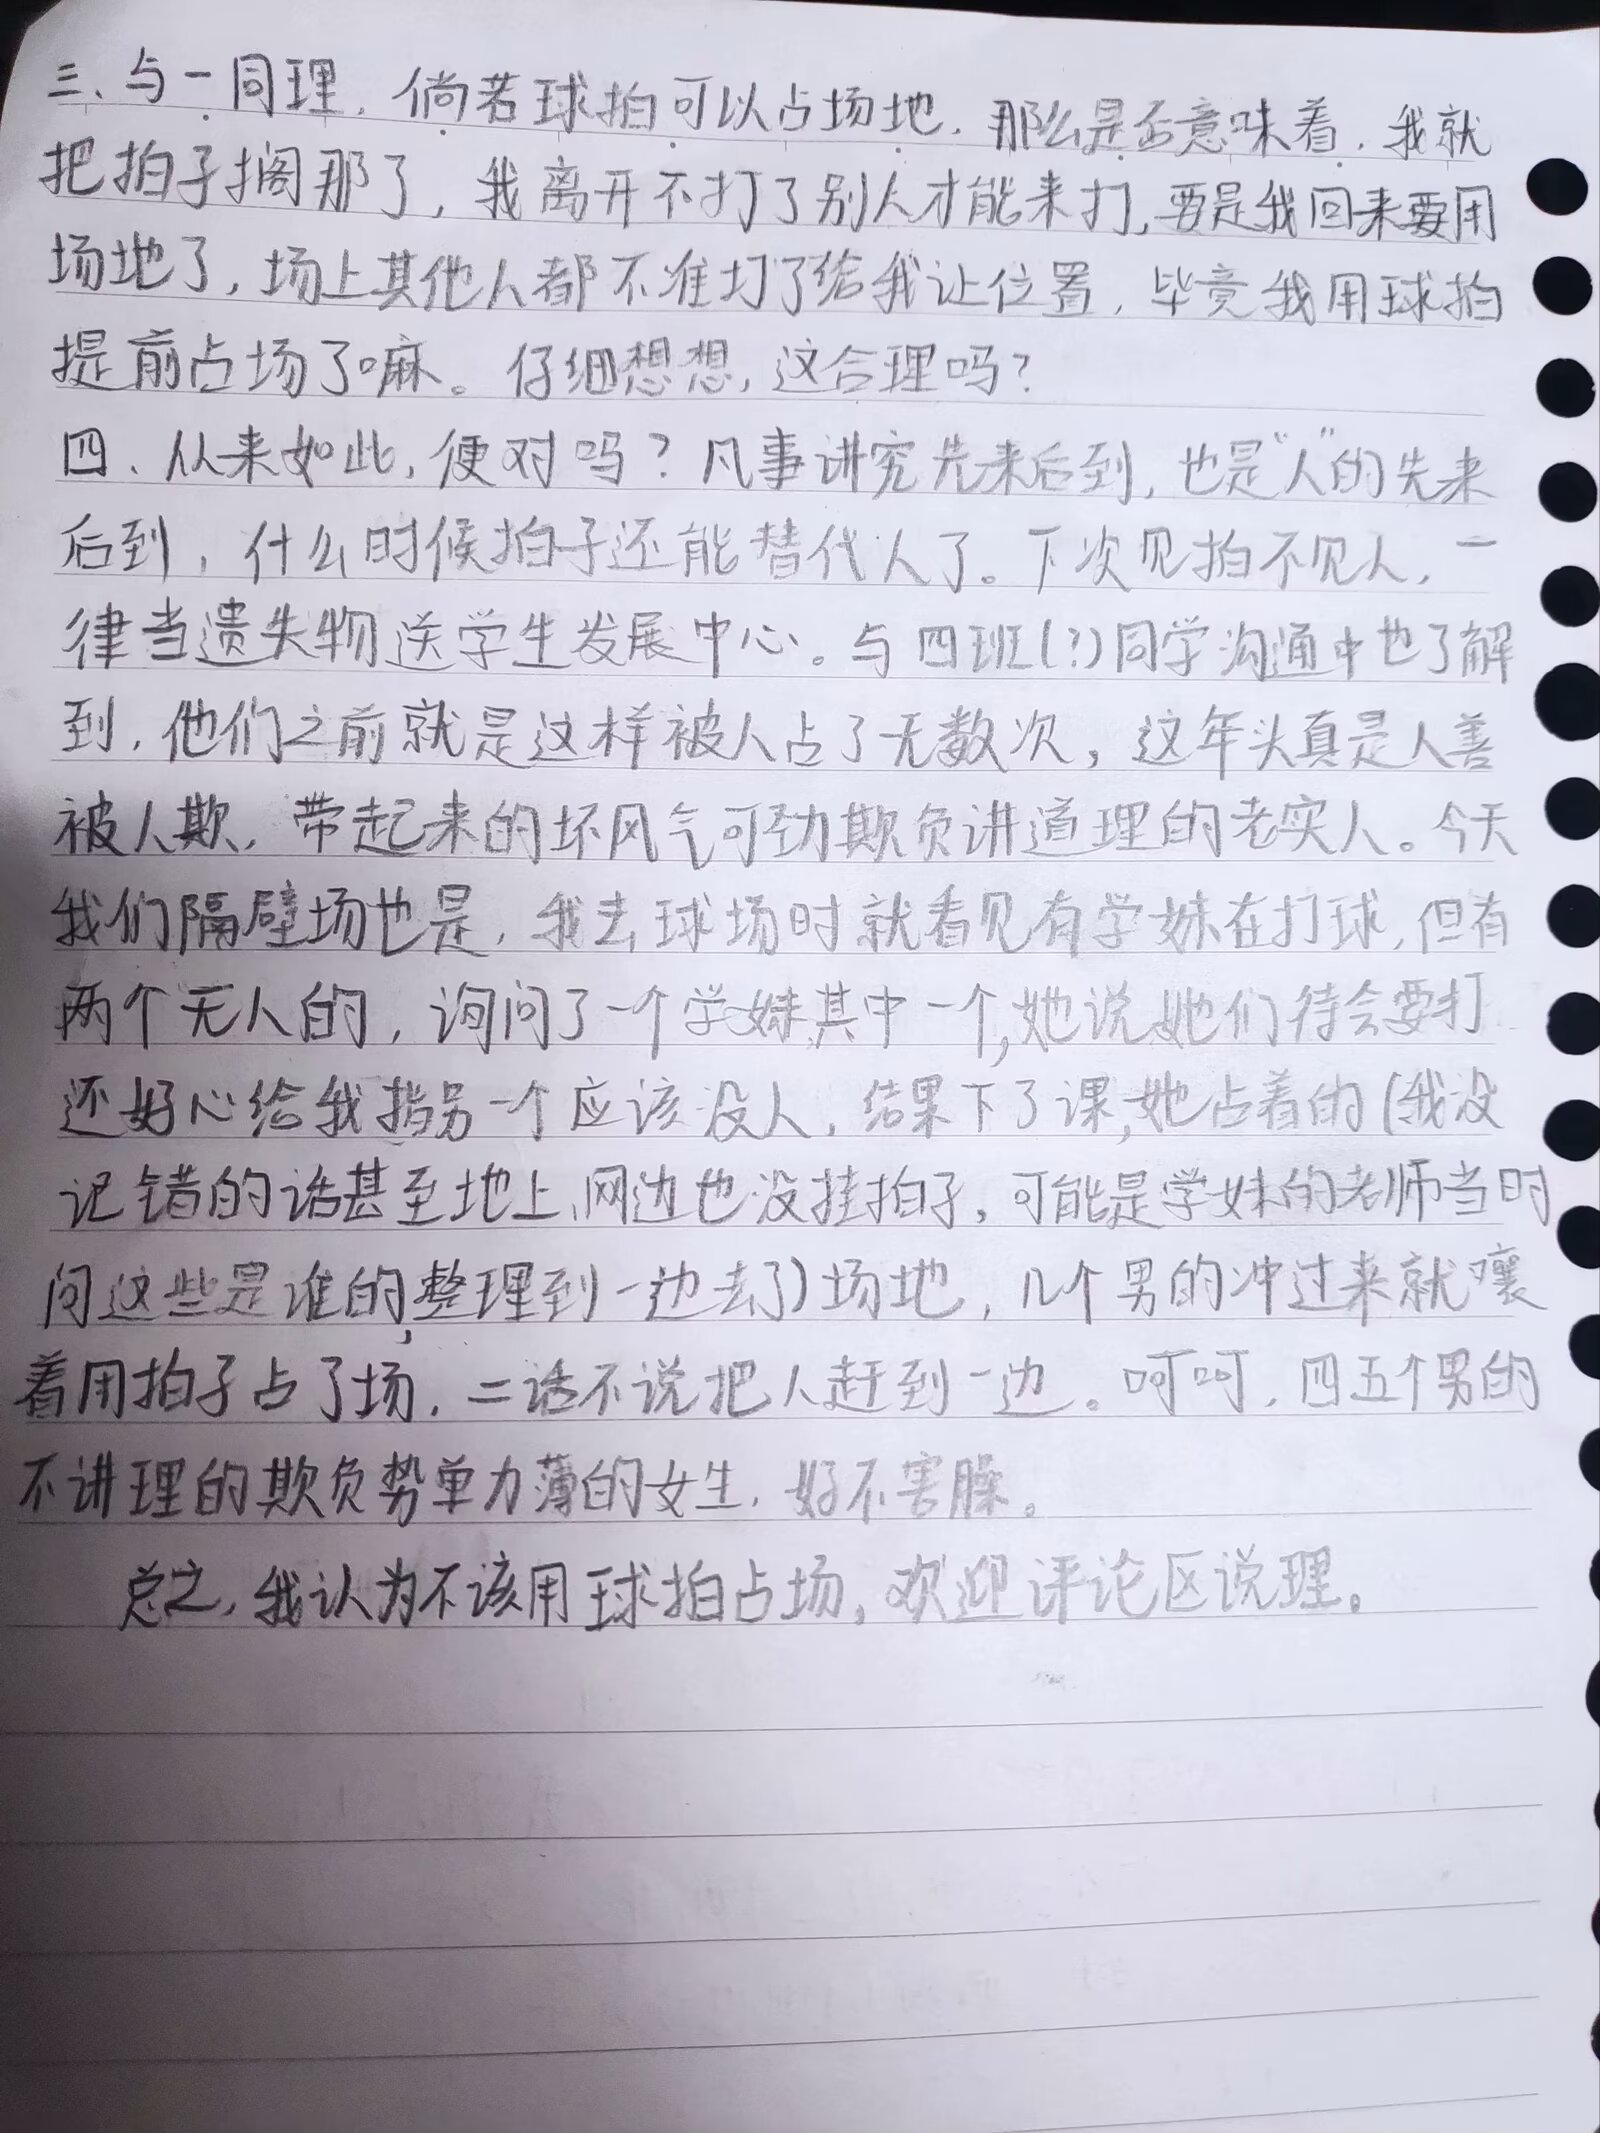 三、与一同理，倘若球拍可以占场地，那么是否意味着，我就
把拍子搁那了，我离开不打了别人才能来打，要是我回来要用
场地了，场上其他人都不准打了给我让位置，毕竟我用球拍
提前占场了嘛。仔细想想，这合理吗？
四、从来如此，便对吗？凡事讲究先来后到，也是“人”的先来
后到，什么时候拍子还能替代人了。下次见拍不见人，一
律当遗失物送学生发展中心。与四班(?)同学沟通中也了解
到，他们之前就是这样被人占了无数次，这年头真是人善
被人欺，带起来的坏风气可劲欺负讲道理的老实人。今天
我们隔壁场也是，我去球场时就看见有学妹在打球，但有
两个无人的，询问了一个学妹其中一个，她说她们待会要打
还好心给我指另一个应该没人，结果下了课，她占着的(我没
记错的话甚至地上、网边也没挂拍子，可能是学妹的老师当时
问这些是谁的，整理到一边去了)场地，几个男的冲过来就嚷
着用拍子占了场，二话不说把人赶到一边。呵呵，四五个男的
不讲理的欺负势单力薄的女生，好不害臊。
总之，我认为不该用球拍占场，欢迎评论区说理。